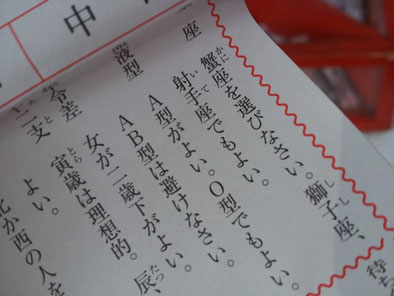 中
待ち
座 蟹座を選びなさい。獅子座、
射手座でもよい。
液型 A型がよい。O型でもよい。
AB型は避けなさい。
令差 女が二歳下がよい。
支 寅歳は理想的。辰、
よい。
か西の人を